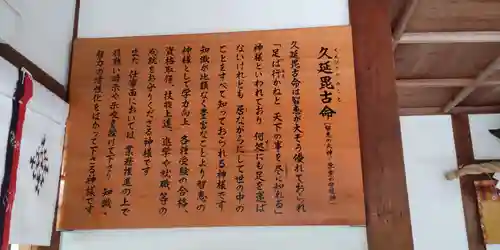 久延毘古命
くえびこのみこと
「智恵の大神」・学業の守護神
久延毘古命は智恵が大そう優れておられ
「足は行かねど 天下の事を 尽に知れる」
神様といわれており 何処にも足を運ば
ないけれども 居ながらにして世の中の
ことをすべて知っておられる神様です
知識が地類なく豊富なことより智恵の
神様として学力向上、各種受験の合格、
資格取得、技術上達、進学や就職等の
成就をお守りくださる神様です
また 仕事面においては 業務推進の上で
目新しい啓示や示唆を授けて下さり 知識・
努力の活性化をはかって下さる神様です